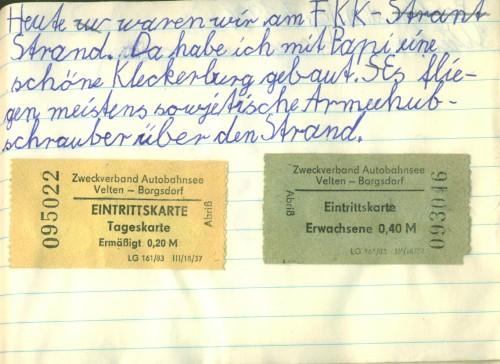 Heute zu waren wir am FKK-Strant
Strand. Da habe ich mit Papi eine
schöne Kleckerburg gebaut. SEs flie-
gen meistens sowjetische Armeehub-
schrauber über den Strand.
095022
Zweckverband Autobahnsee
Velten – Borgsdorf
EINTRITTSKARTE
Tageskarte
Ermäßigt 0,20 M
LG 161/83 III/18/37
Abriß
Zweckverband Autobahnsee
Velten – Borgsdorf
Eintrittskarte
Erwachsene 0,40 M
LG 161/83
Abriß
093016